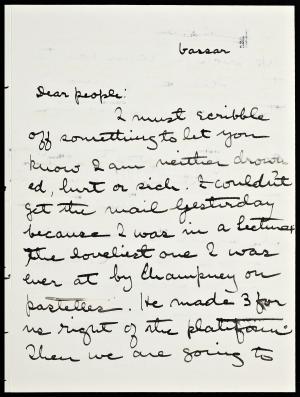 Vassar
Dear people:
I must scribble
off something to let you
know I am neither drown
ed, hurt or sick. I couldn't
get the mail yesterday
because I was in a lecture,
the loveliest one I was
ever at by Champney on
pastelles. He made 3 for
us right off the platform.
Then we are going to